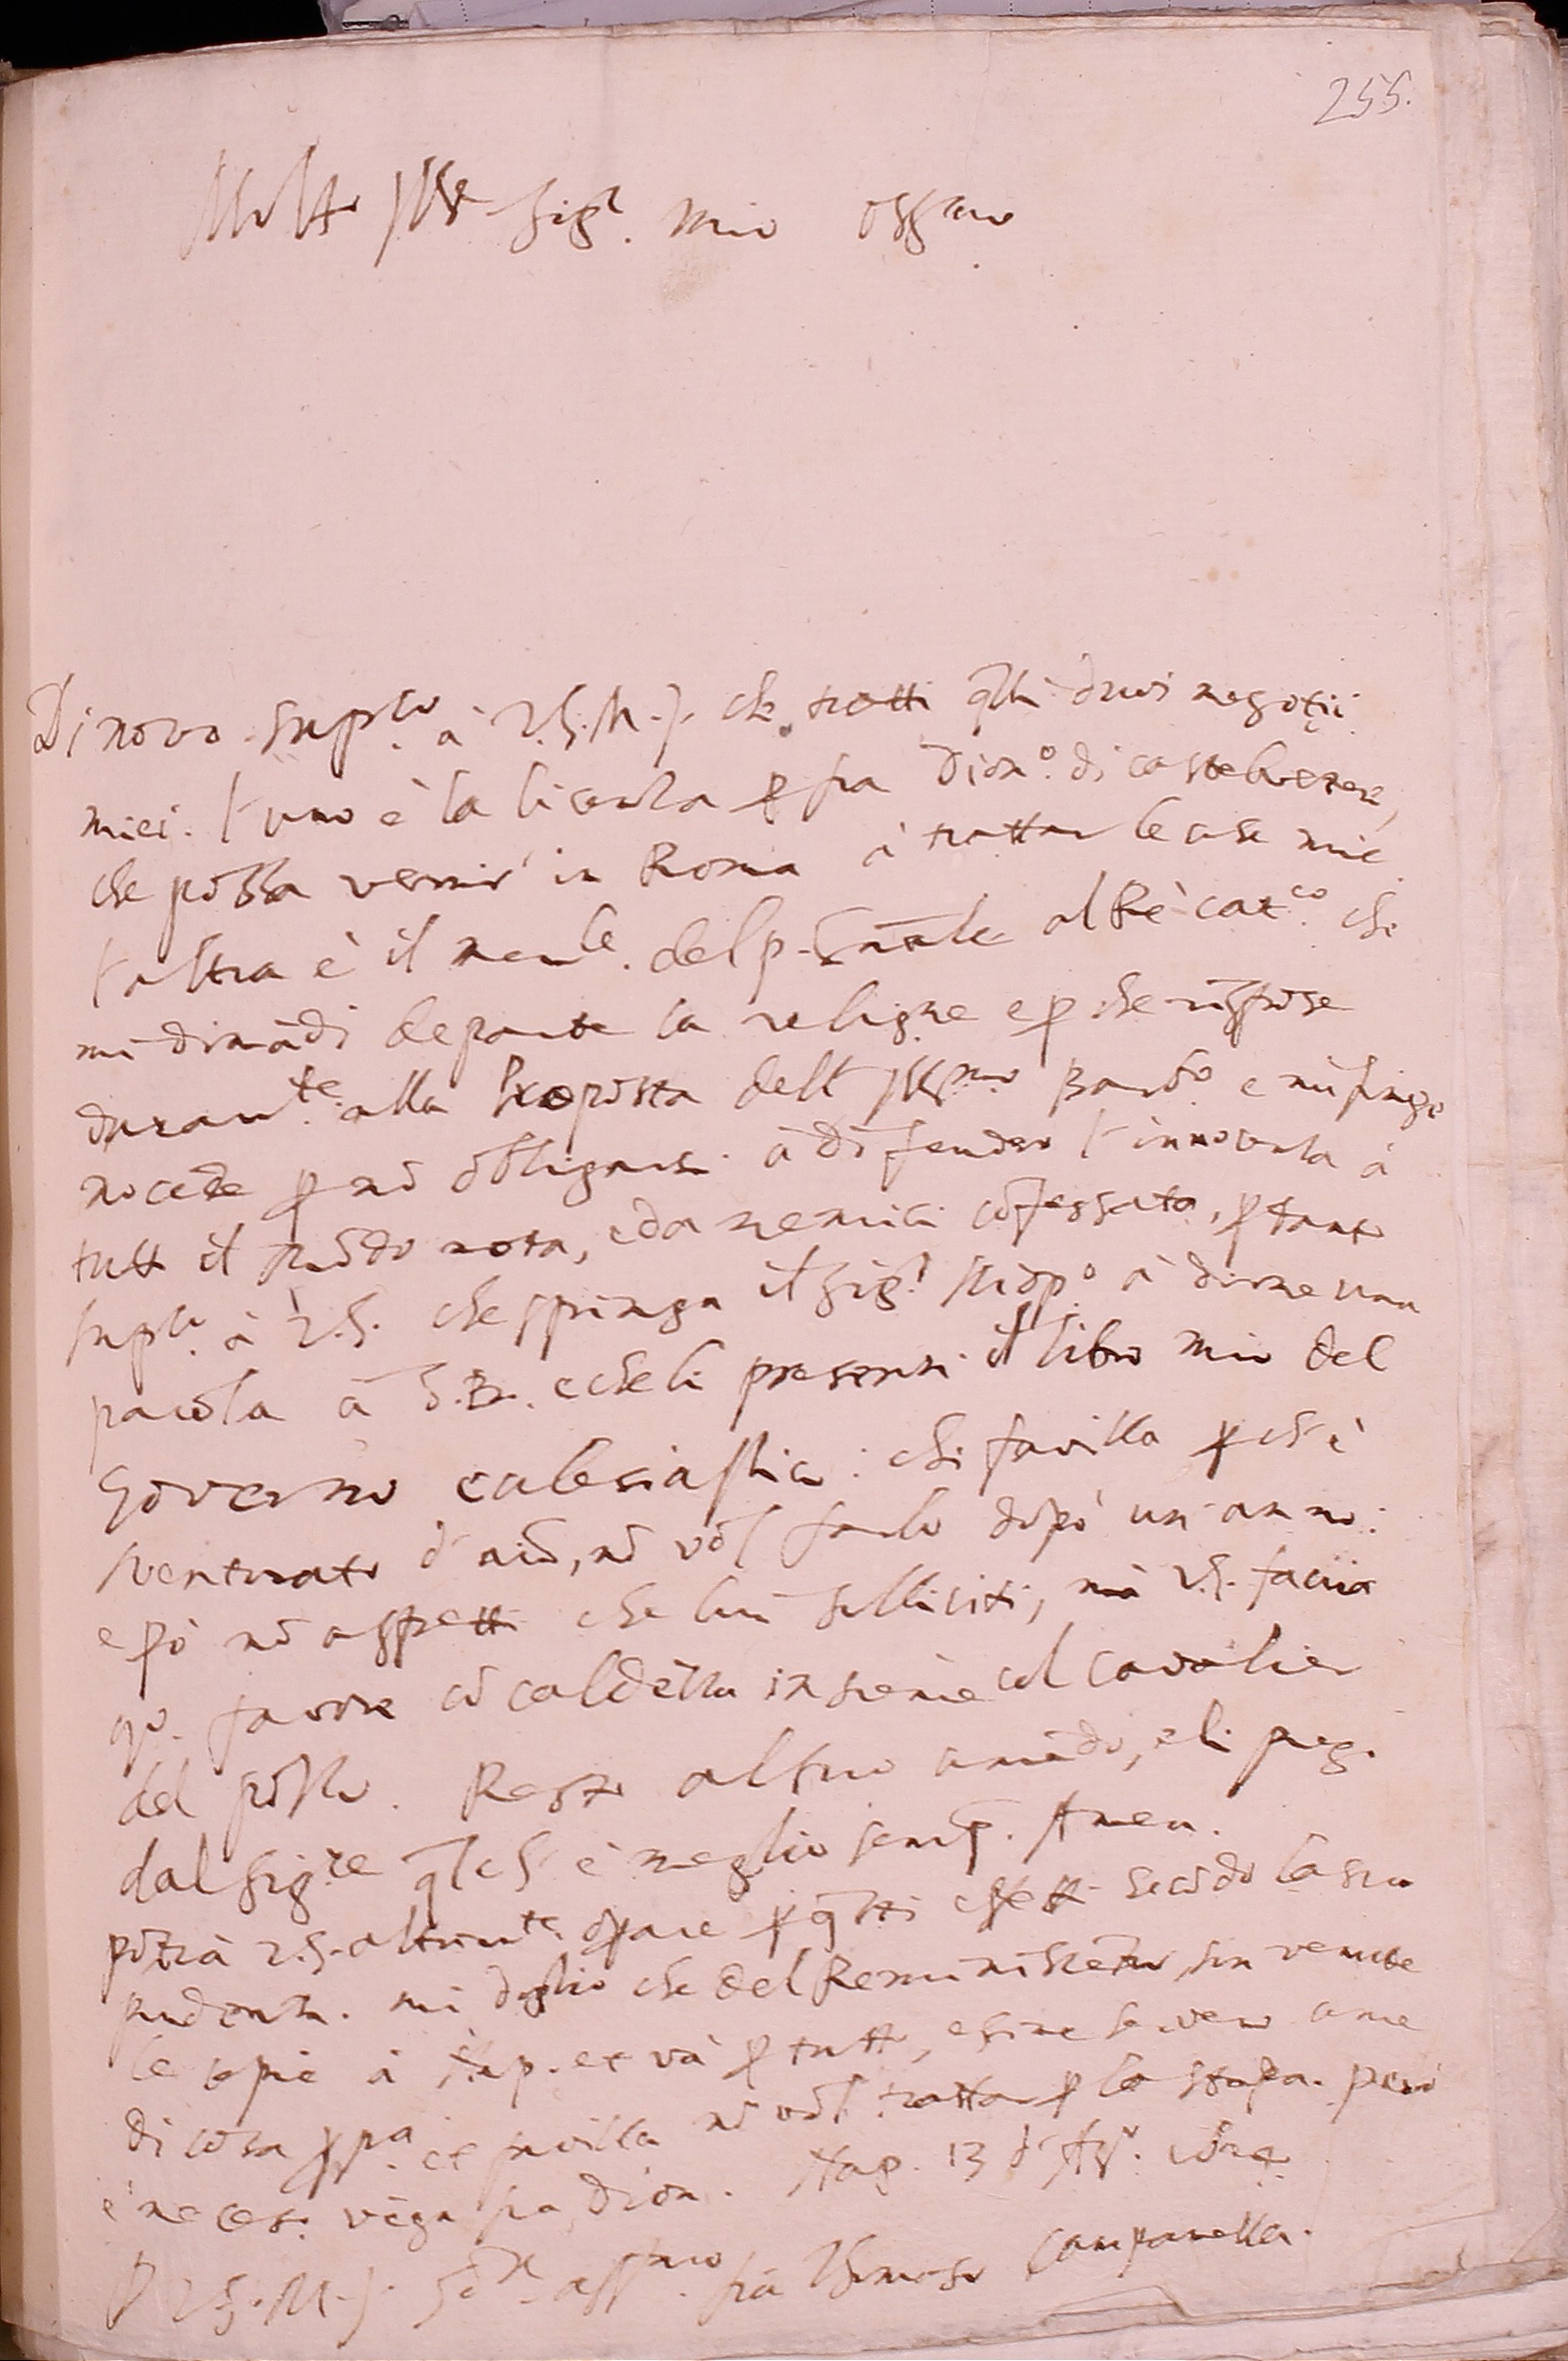 255.
Molto Ill.e Sig.r mio oss.mo
Di novo suplo à V.S.M.I. che tratti q̄lli duoi negotii
miei. l'uno è la licenza ꝑ fra Dion.o di castelvetere,
che possa venir in Roma à trattar le cose mie
l'altra è il del p. Gn̄ale al Rè cat.co che
mi dimādi de parte la religne e ꝑche rispose
duram.te alla proposta dell' Ill.mo e mi finge
nocēte ꝑ nō obligarsi à difender l'innocenza à
tutto il mōdo nota, e da nemici cōfessata, ꝑtanto
suplo à V.S. che spinga il Sig.r à dirne una
parola à S.B. e che li presenti il libro mio del
governo ecclesiastico: chi favilla ꝑch'è
sventurato d'aiu, nō vol farlo dopò un anno:
e ꝑò nō aspetti che lui solliciti, mà V.S. faccia
qo. favore cō caldezza insieme col cavalier
del pozzo. Resto al suo comādo, e li preg.
dal Sig.re q̄l ch' è meglio semꝑ. Amen.
potrà V.S. altrim.te oprare ꝑ q̄sti effetti secōdo la sua
prudenza. mi doglio che del Reminiscētur sin venute
le copie à Nap. et và ꝑ tutto, e si ne servero ame
di cosa ꝓpa. et favilla nō vol trattar ꝑ la stāpa. però
è necess.o vēga fra Dion. Nap. 13 d'Ag.o
D V.S.M.I. aff.mo fra Thomaso Campanella.